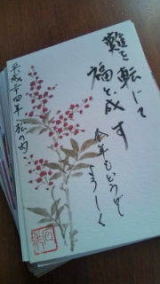 難を転じて
福と成す
今年もどうぞ
よろしく
平成二十四年 松の内